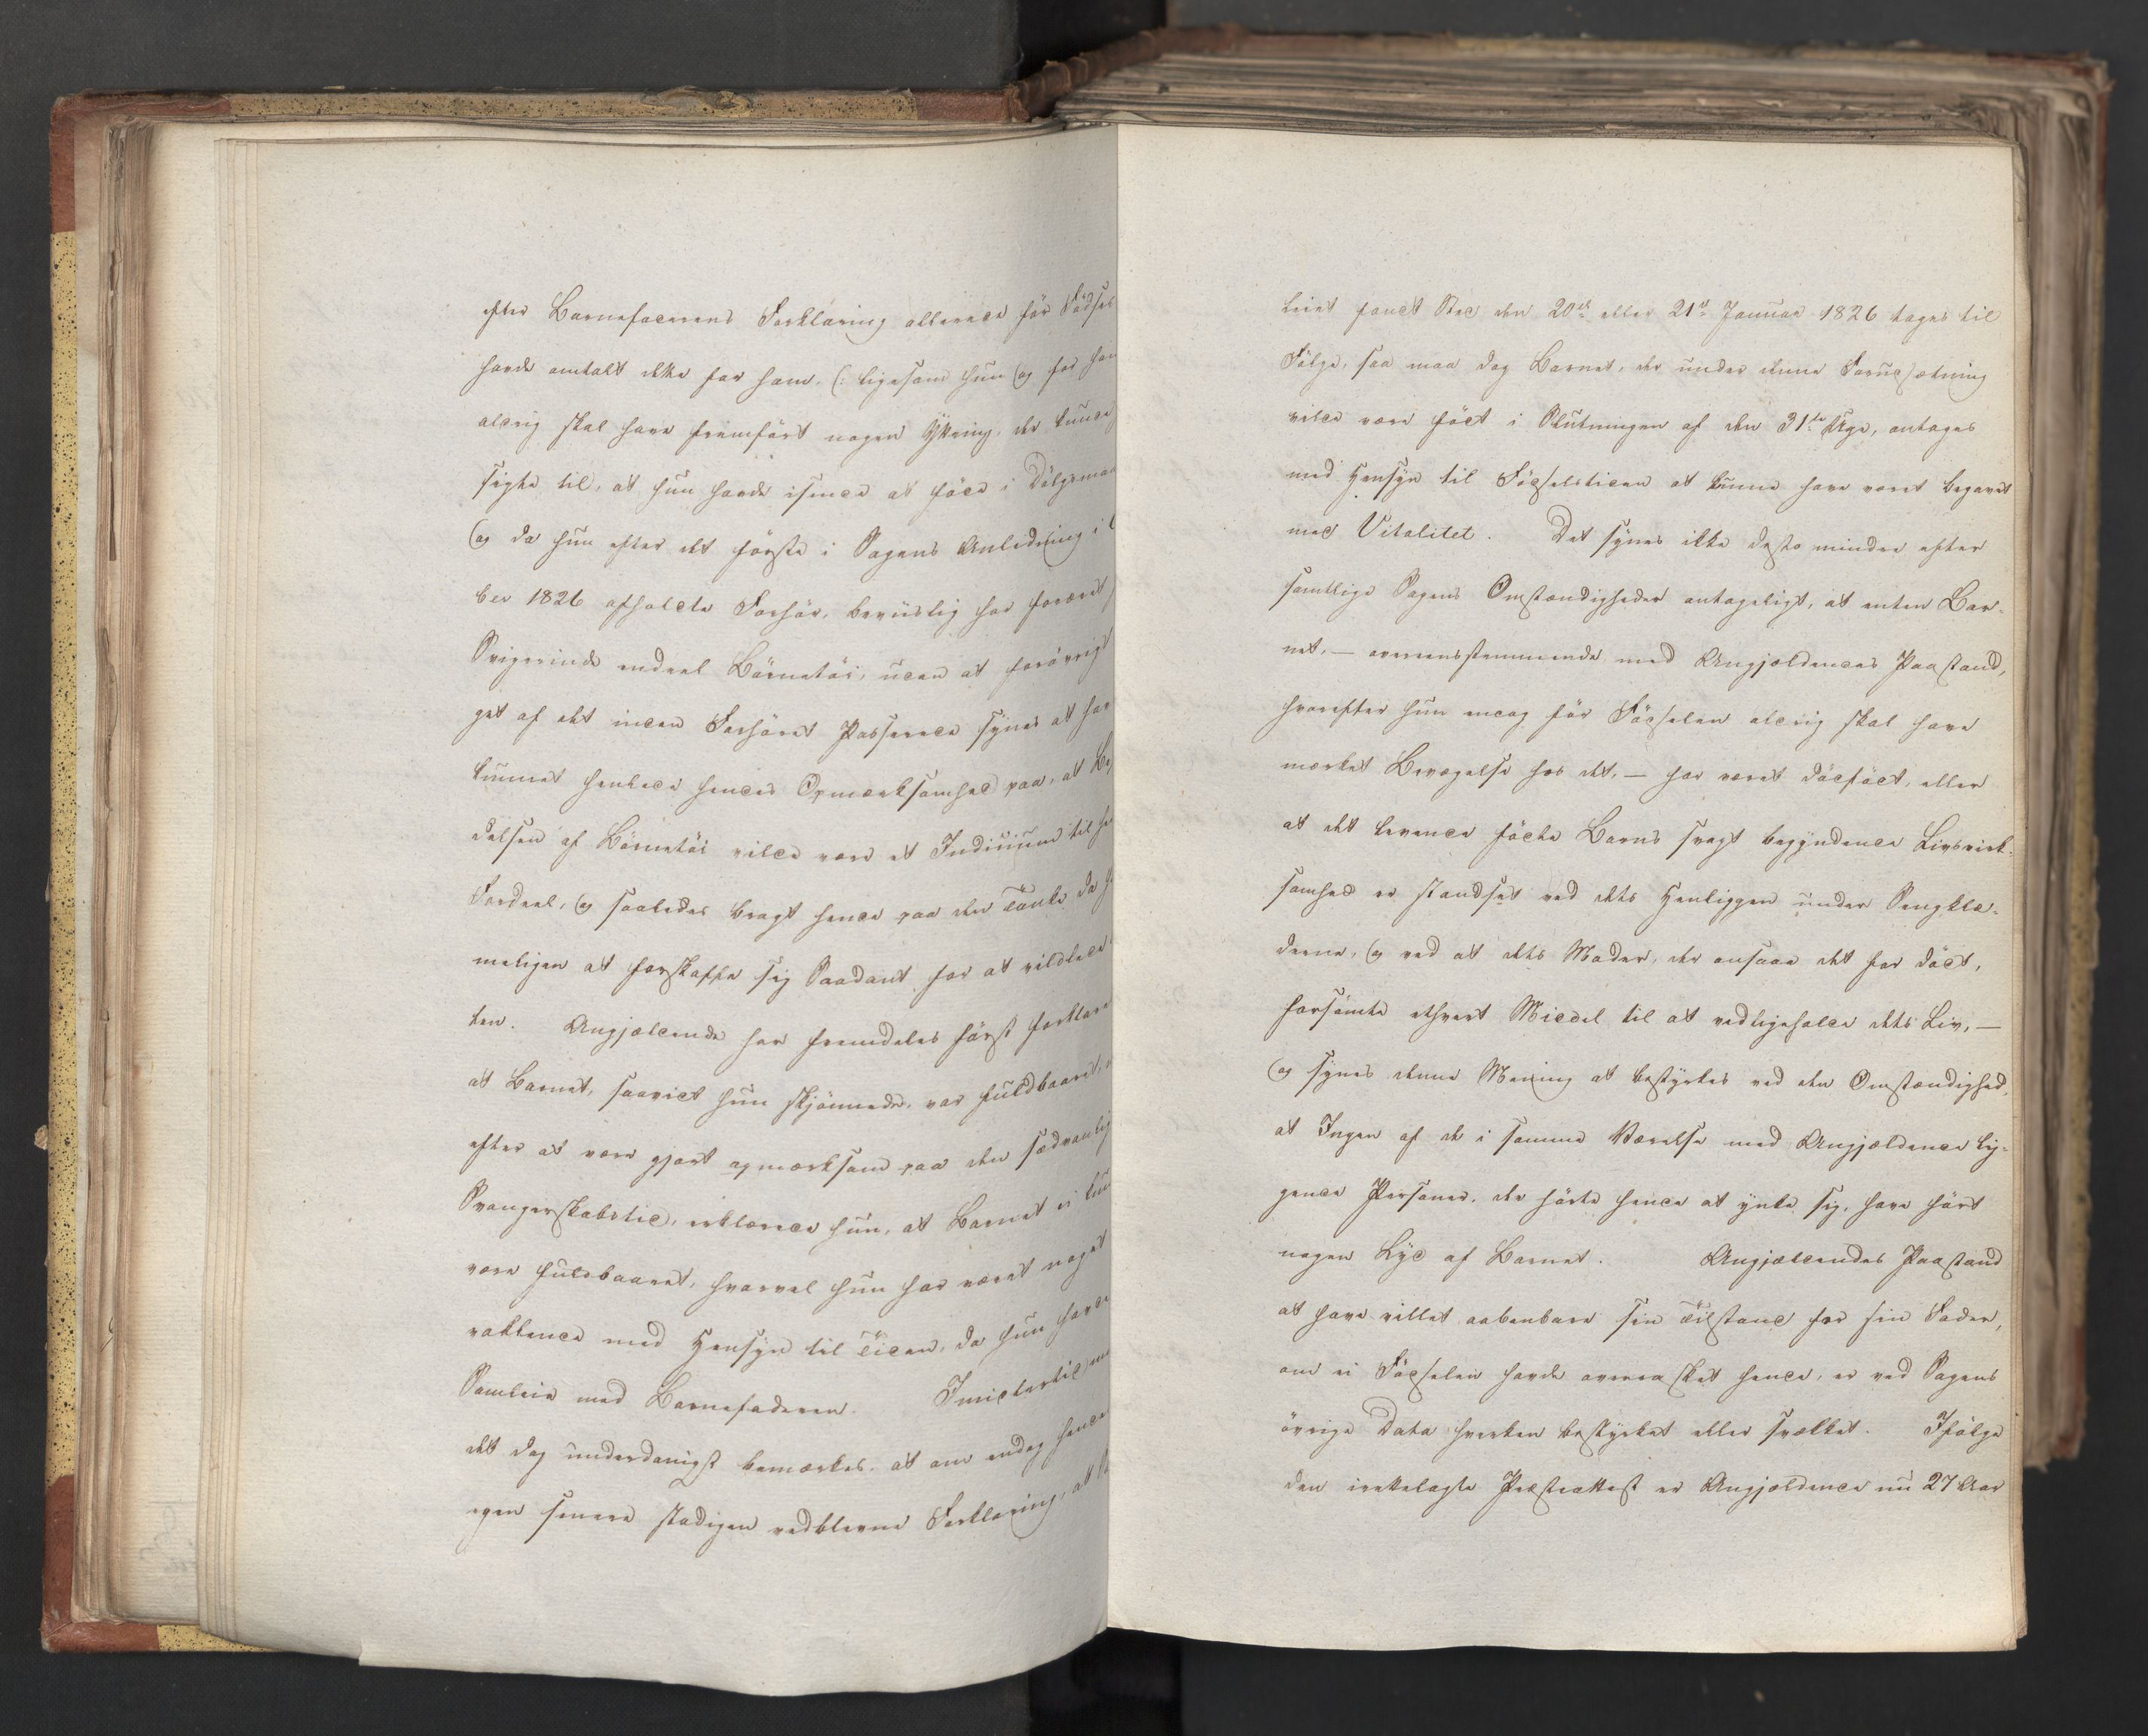 efter Barnefaderens Forklaring allerede før Fødsel
havde omtalt dette for ham, (: ligesom hun og for ham
aldrig skal have fremført nogen Yttring, der kunde
sigte til, at hun havde isinde at føde i Dølgsmaal
og da hun efter det første i Sagens Anledning i
ber 1826 afholdte Forhør, beviislig har foræret
Svigerinde endeel Børnetøi, uden at forøvrigt
get af det inden Forhøret Passerede synes at have
kunnet henlede hendes Opmærksomhed paa, at Be
delsen af Børnetøi vilde være et Indicium til hen
Fordeel, og saaledes bragt hende paa den Tanke da
meligen at forskaffe sig Saadant for at vildlede
ten. Angjældende har fremdeles først forklaret
at Barnet, saavidt hun skjønnede, var fuldbaaret,
efter at være gjort opmærksom paa den sædvanlig
Svangerskabstid, erklærede hun, at Barnet ei kun
være fuldbaaret, hvorvel hun har været noget
vaklende med Hensyn til Tiden, da hun havde
Samleie med Barnefaderen. Imidlertid maa
det dog underdanigst bemærkes, at om endog hendes
egen senere stadigen vedblevne Forklaring, at
leiet fandt Sted den 20de eller 21de Januar 1826 tages til
Følge, saa maa dog Barnet, der under denne Forudsætning
vilde være født i Slutningen af den 31te Uge, antages
med Hensyn til Fødselstiden at kunne have været begavet
med Vitalitet. Det synes ikke desto mindre efter
samtlige Sagens Omstændigheder antageligt, at enten Bar-
net, — overeensstemmende med Angjældendes Paastand,
hvorefter hun endog før Fødselen aldrig skal have
mærket Bevægelse hos det, — har været dødfødt, eller
at det levende fødte Barns svagt begyndende Livsvirk-
somhed er standset ved dets Henliggen under Sengklæ-
derne, og ved at dets Moder, der ansaae det for dødt,
forsømte ethvert Middel til at vedligeholde dets Liv, —
og synes denne Mening at bestyrkes ved den Omstændighed,
at Ingen af de i samme Værelse med Angjældende lig-
gende Personer, der hørte hende at ynke sig, have hørt
nogen Lyd af Barnet. Angjældendes Paastand
at have villet aabenbare sin Tilstand for sin Fader,
om ei Fødselen havde overrasket hende, er ved Sagens
øvrige Data hverken bestyrket eller svækket. Ifølge
den irettelagte Præsteattest er Angjældende nu 27 Aar